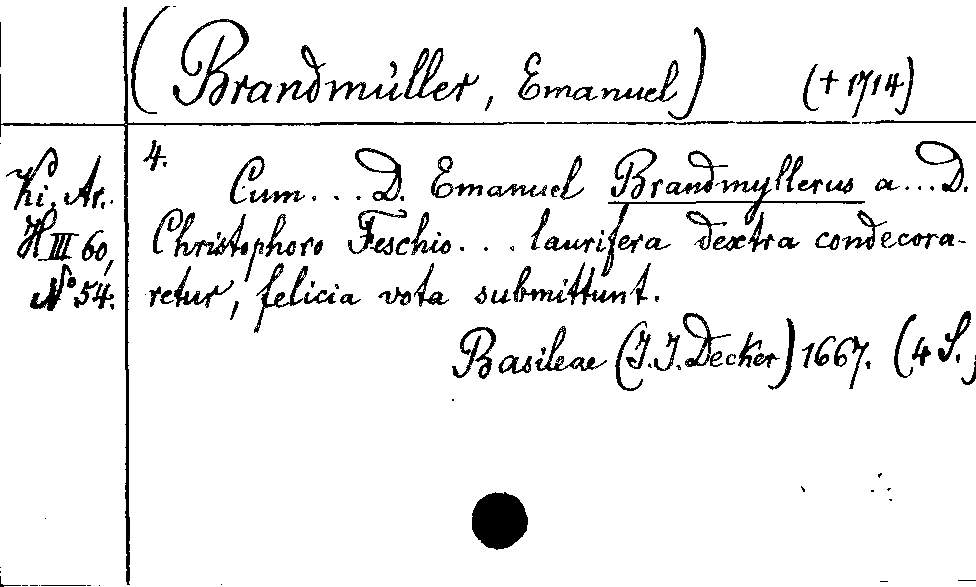 (Brandmüller, Emanuel) († 1714)
4.
Ki. Ar. Cum... D. Emanuel Brandmyllerus a... D.
H III 60, Christophoro Feschio... laurifera dextra condecora-
No 54. retur, felicia vota submittunt.
Basileae (J. J. Decker) 1667. (4 S.)